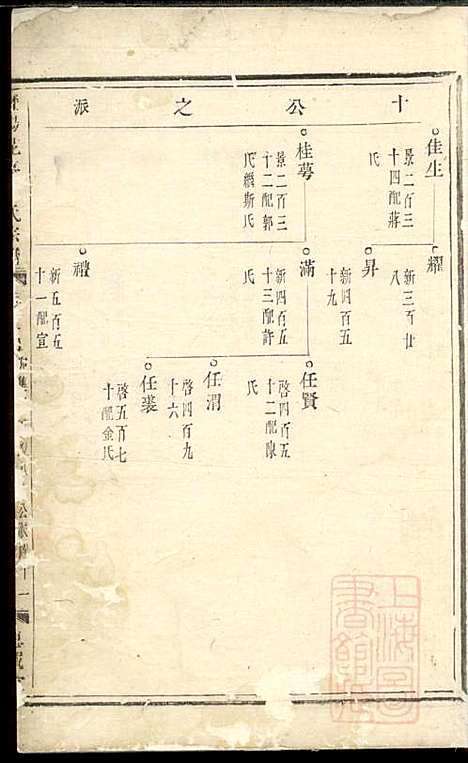 十公之派
佳生
景二百三
十四配蔣
氏
桂蕚
景二百三
十二配郭
氏繼斯氏
耀
新三百廿
八
昇
新四百五
十九
滿
新四百五
十三配許
氏
禮
新五百五
十一配宣
任賢
啓四百五
十二配陳
氏
任渭
啓四百九
十六
任裘
啓五百七
十配金氏
上海圖
書館藏